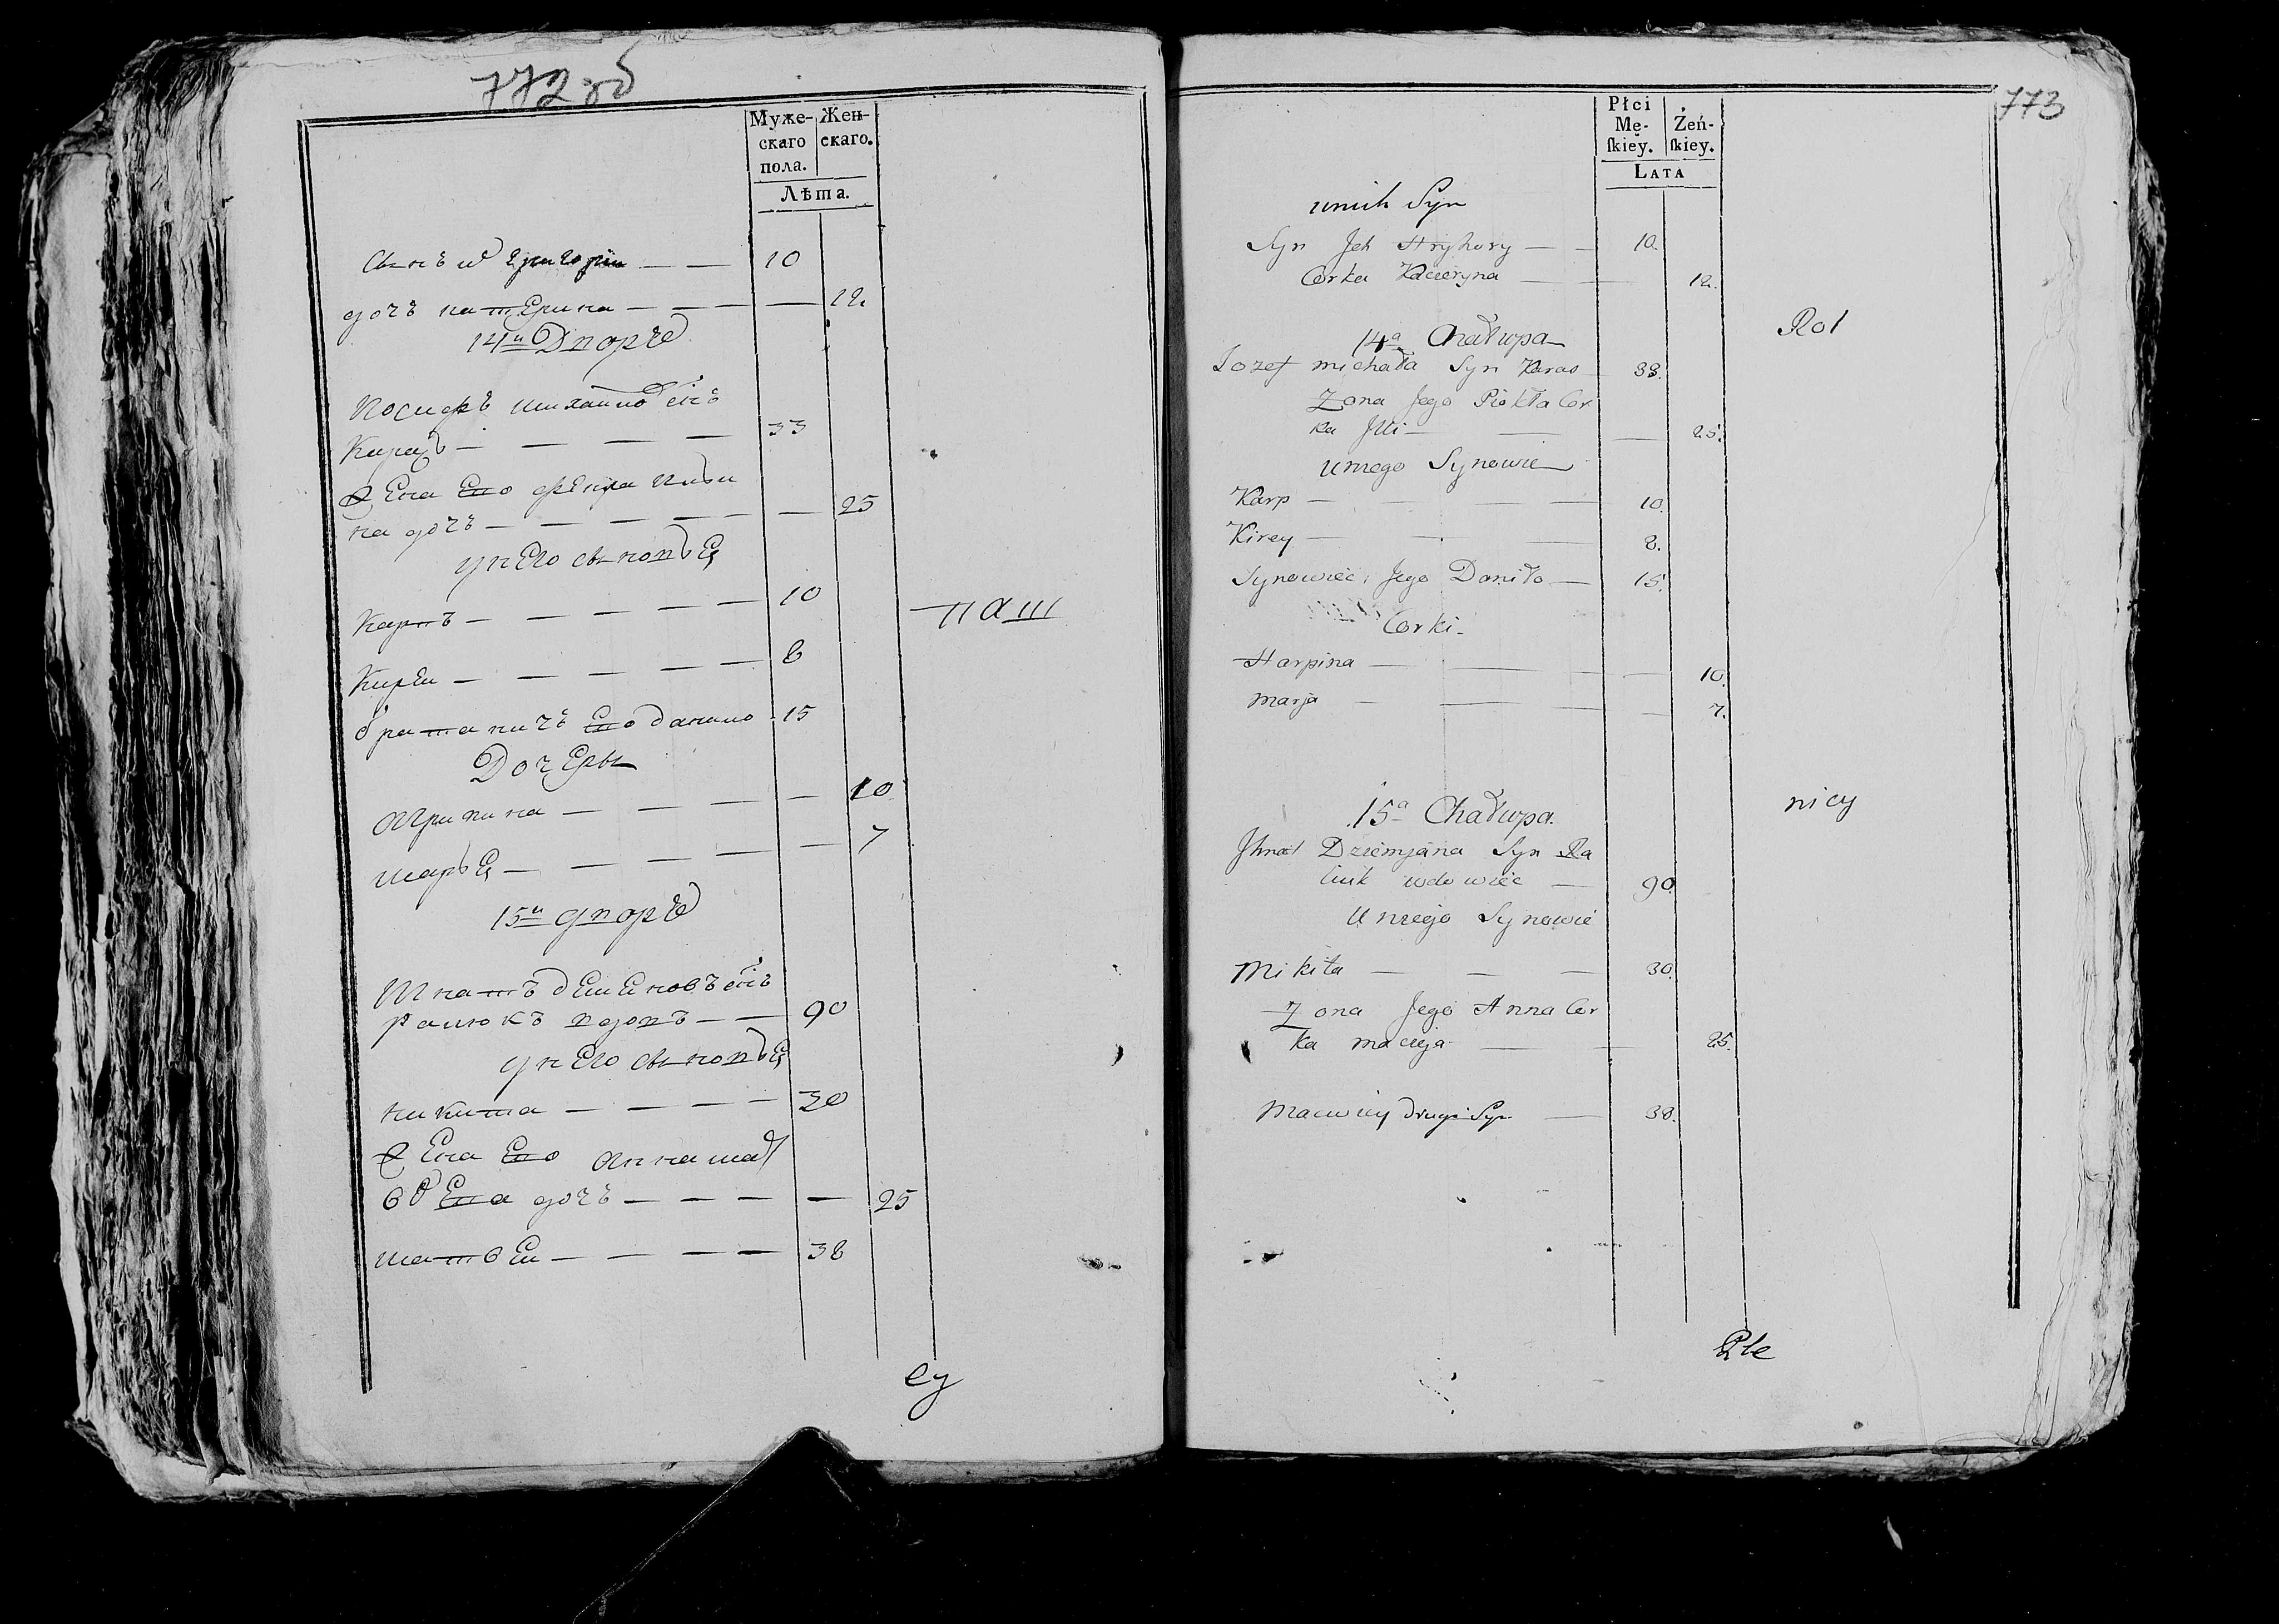 772 об
Муже- Жен-
скаго скаго.
пола.
Лѣта.
сынъ их григории — — 10
дочь катерина — — — — 12
14й Дворъ
Иосифъ михайлов снъ
Карась — — — — 33
жена Его фекла Ильи
на дочь — — — — — — 25
у него сыновья
Карпъ — — — — — 10
Кирей — — — — — 8
братаничъ Его данило 15
Дочеры
агрипина — — — — 10
марья — — — — — 7
15й дворъ
Игнатъ дементовъ снъ
ралюкъ вдовъ — — 90
у него сыновья
никита — — — — 30
жена Его анна мат
вѣева дочь — — — — 25
матвей — — — — 38
паш
еу
773
Płci
Mę- Żeń-
ſkiey. ſkiey.
LATA
unich Syn
Syn Jch Hryhory — — 10.
Corka Kacieryna — — 12.
14a Chałupa
Jozef michała Syn Karas 33.
Zona Jego Piokła Cor
ka Jlli — — — 25.
uniego Synowie
Karp — — — 10.
Kirey — — — 8.
Synowiec Jego Daniło — 15.
Corki
Harpina — — — 10.
Marja — — — — 7.
Rol
15a Chałupa.
Jhnat Dziemjana Syn Ra
luk wdowiec — 90.
U niego Synowie
Mikita — — — 30.
Zona Jego Anna Cor
ka macieja — — 25.
Maciey drugi Syn — 38.
nicy